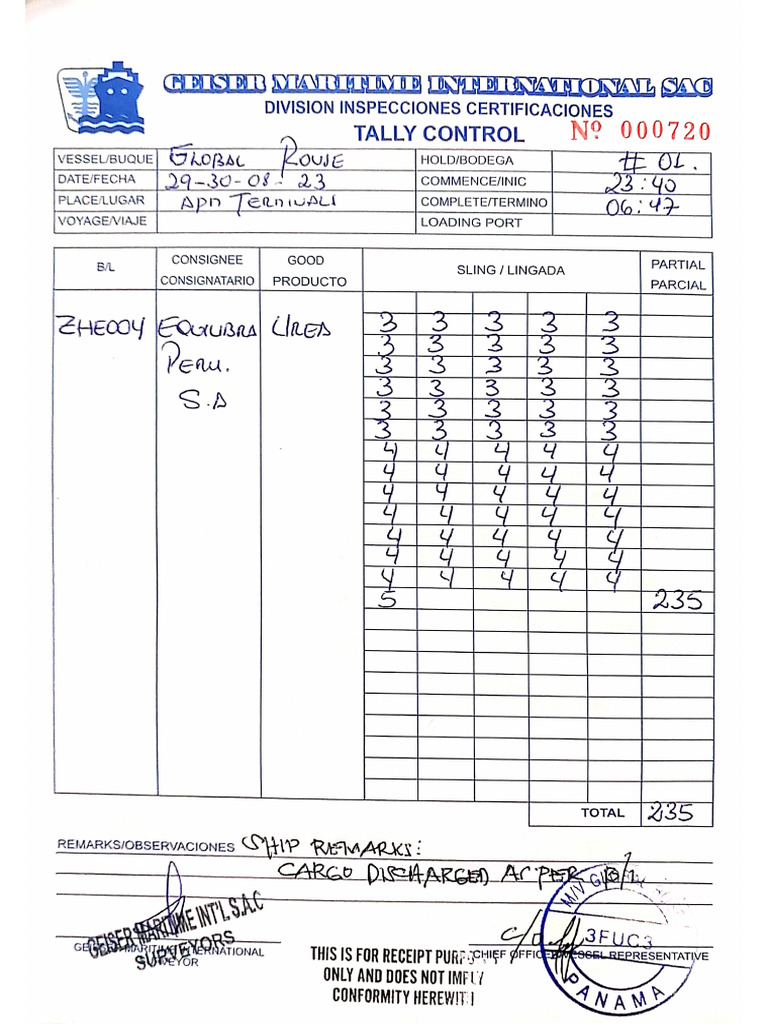 GEISER MARITIME INTERNATIONAL SAC
DIVISION INSPECCIONES CERTIFICACIONES
TALLY CONTROL Nº 000720
VESSEL/BUQUE GLOBAL ROUSE HOLD/BODEGA # 01.
DATE/FECHA 29-30-08-23 COMMENCE/INIC 23:40
PLACE/LUGAR APM TERMINALS COMPLETE/TERMINO 06:47
VOYAGE/VIAJE LOADING PORT
B/L CONSIGNEE CONSIGNATARIO GOOD PRODUCTO SLING / LINGADA PARTIAL PARCIAL
ZHE004 EQUILIBRA UREA 3 3 3 3 3
3 3 3 3 3
PERU. 3 3 3 3 3
3 3 3 3 3
S.A 3 3 3 3 3
3 3 3 3 3
4 4 4 4 4
4 4 4 4 4
4 4 4 4 4
4 4 4 4 4
4 4 4 4 4
4 4 4 4 4
4 4 4 4 4
5 235
TOTAL 235
REMARKS/OBSERVACIONES SHIP REMARKS:
CARGO DISCHARGED AS PER B/L
GEISER MARITIME INT'L S.A.C
SURVEYORS
GEISER MARITIME INTERNATIONAL
SURVEYOR
C/O
CHIEF OFFICER/VESSEL REPRESENTATIVE
THIS IS FOR RECEIPT PURPOSE
ONLY AND DOES NOT IMPLY
CONFORMITY HEREWITH
M/V
3FUC3
PANAMA